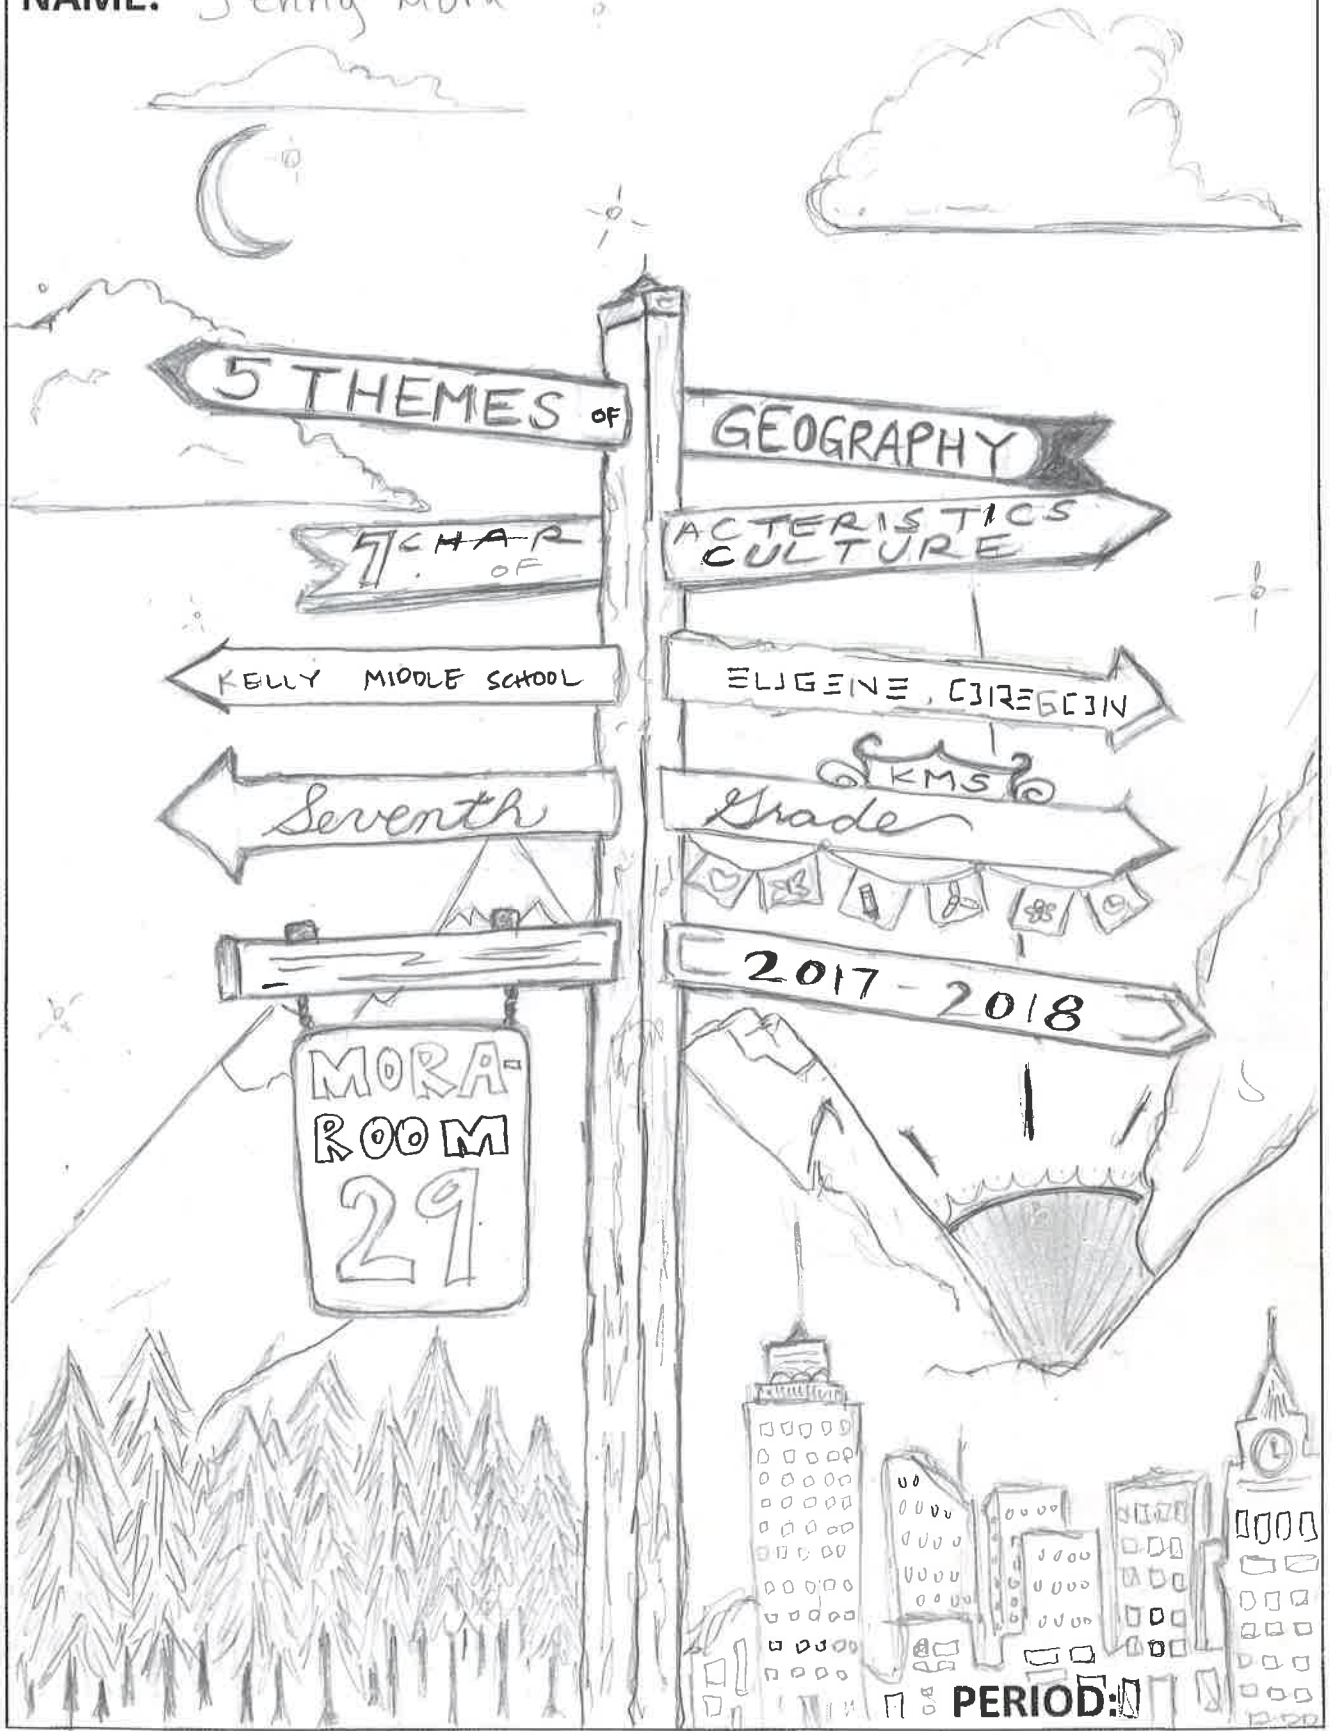 NAME: Jenny Mora
5 THEMES OF GEOGRAPHY
7 CHARACTERISTICS
OF CULTURE
KELLY MIDDLE SCHOOL
EUGENE, OREGON
KMS
Seventh Grade
2017-2018
MORA-
ROOM
29
PERIOD: